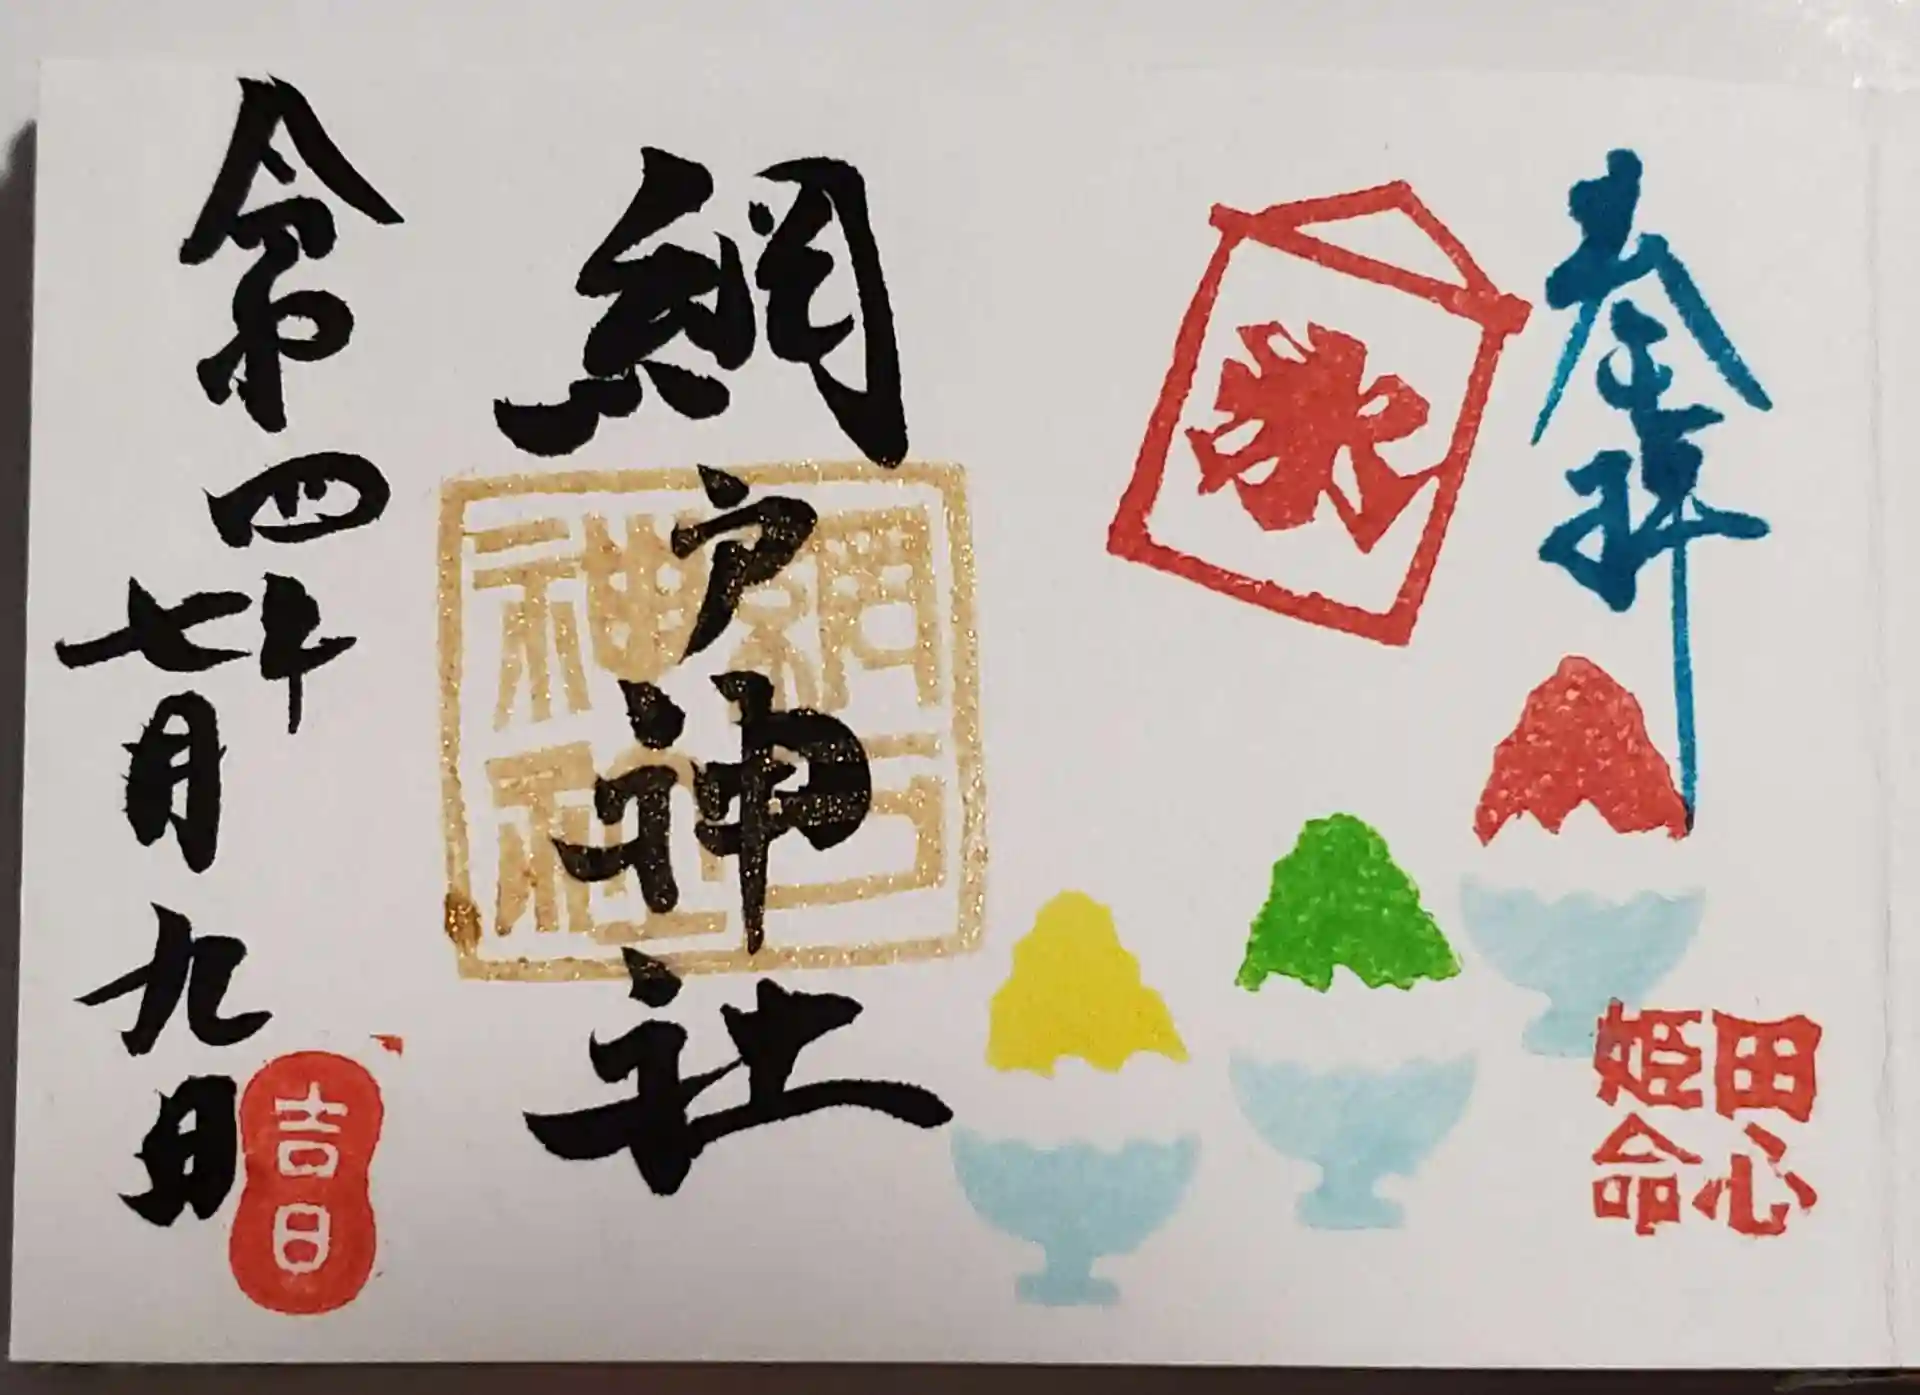 奉拝
田心
姫命
網戸神社
網戸
神社
令和四年
七月九日
吉日